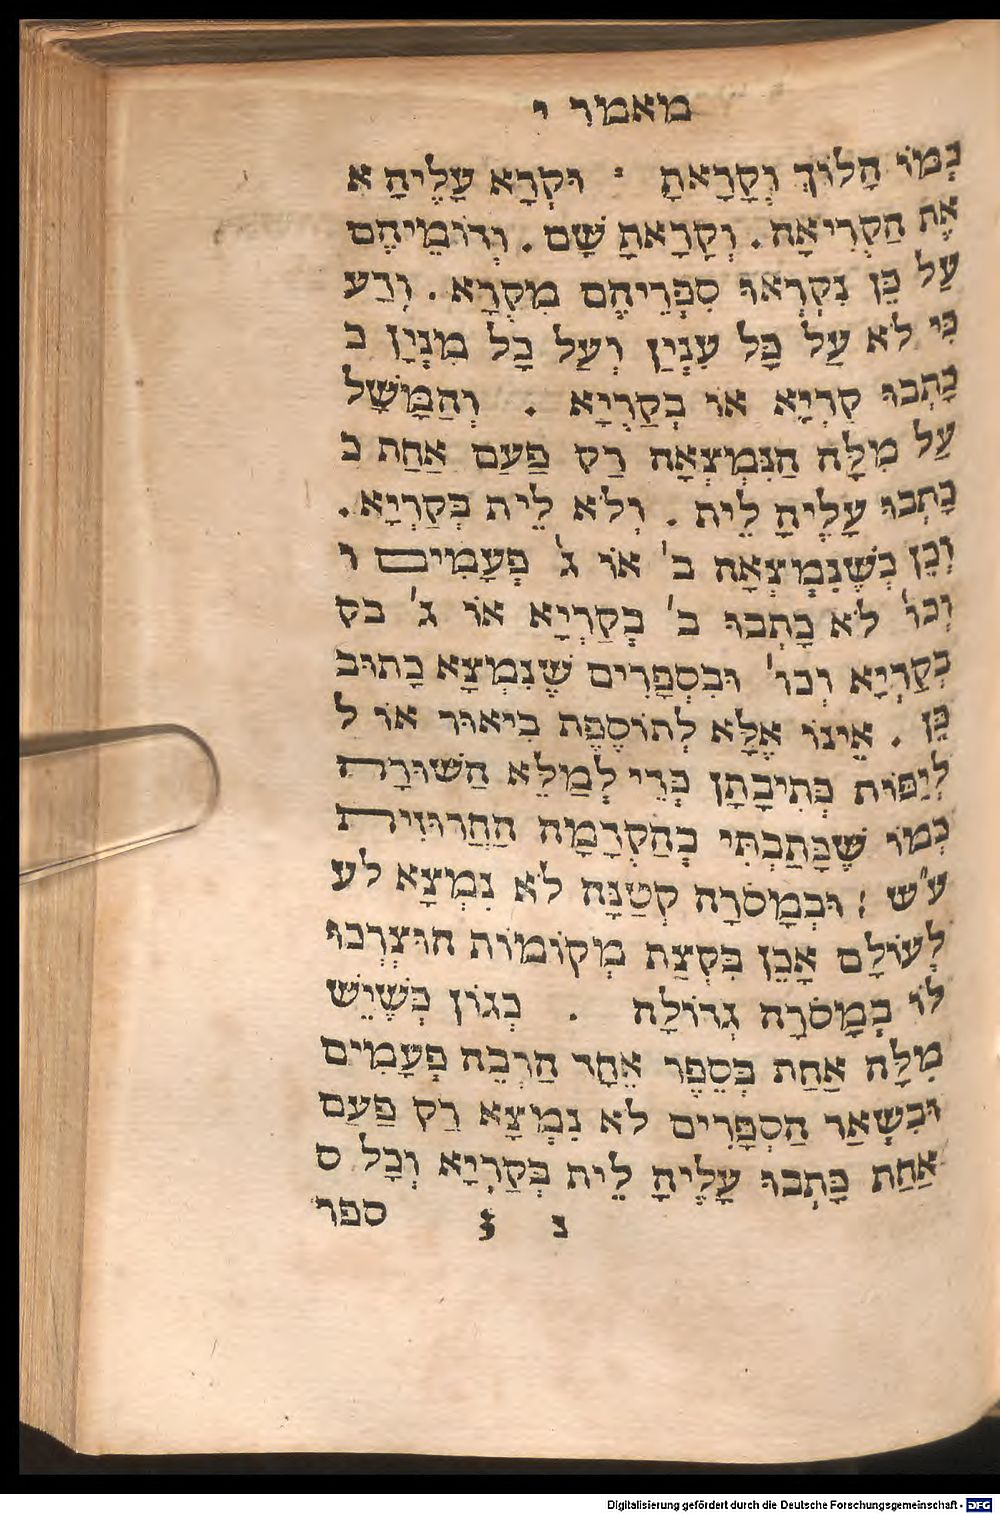 מאמר י
כְּמוֹ הָלוֹךְ וְקָרָאתָ : וּקְרָא עָלֶיהָ א
אֶת הַקְרִיאָה. וְקָרָאתָ שָׁם. וְדוֹמֵיהֶם
עַל כֵּן נִקְרְאוּ סִפְרֵיהֶם מִקְרָא. וְדַע
כִּי לֹא עַל כָּל עִנְיָן וְעַל כָל מִנְיָן כ
כָּתְבוּ קַרְיָא אוֹ בְקַרְיָא . וְהַמָּשָׁל
עַל מִלָּה הַנִּמְצְאָה רַק פַּעַם אַחַת כ
כָּתְבוּ עָלֶיהָ לֵית. וְלֹא לֵית בְּקַרְיָא.
וְכֵן כְּשֶׁנִמְצְאָה ב' אוֹ ג' פְּעָמִים ו
וְכוּ' לֹא כָתְבוּ ב' בְּקַרְיָא אוֹ ג' בק
בְּקַרְיָא וְכוּ' וּבִסְפָרִים שֶׁנִמְצָא כָתוּב
כֵּן . אֵינוֹ אֶלָּא לְתוֹסֶפֶת בִּיאוּר אוֹ ל
לְיַפּוֹת כְּתִיבָתָן כְּדֵי לְמַלֵּא הַשּׁוּרָה
כְּמוֹ שֶׁכָּתַבְתִּי בְהַקְדָמָה הַחֲרוּזִית
ע"ש : וּבְמָסֹרָה קְטַנָּה לֹא נִמְצָא לע
לְעוֹלָם אָכֵן בִּקְצָת מְקוֹמוֹת הוּצְרְכוּ
לוֹ בְמָסֹרָה גְדוֹלָה . כְּגוֹן כְּשֶׁיֵשׁ
מִלָּה אַחַת בְּסֵפֶר אֶחָד הַרְבֵּה פְעָמִים
וּבִשְׁאַר הַסְפָרִים לֹא נִמְצָא רַק פַּעַם
אַחַת כָּתְבוּ עָלֶיהָ לֵית בְּקַרְיָא וְכָל ס
נ 3 ספר
Digitalisierung gefördert durch die Deutsche Forschungsgemeinschaft - DFG